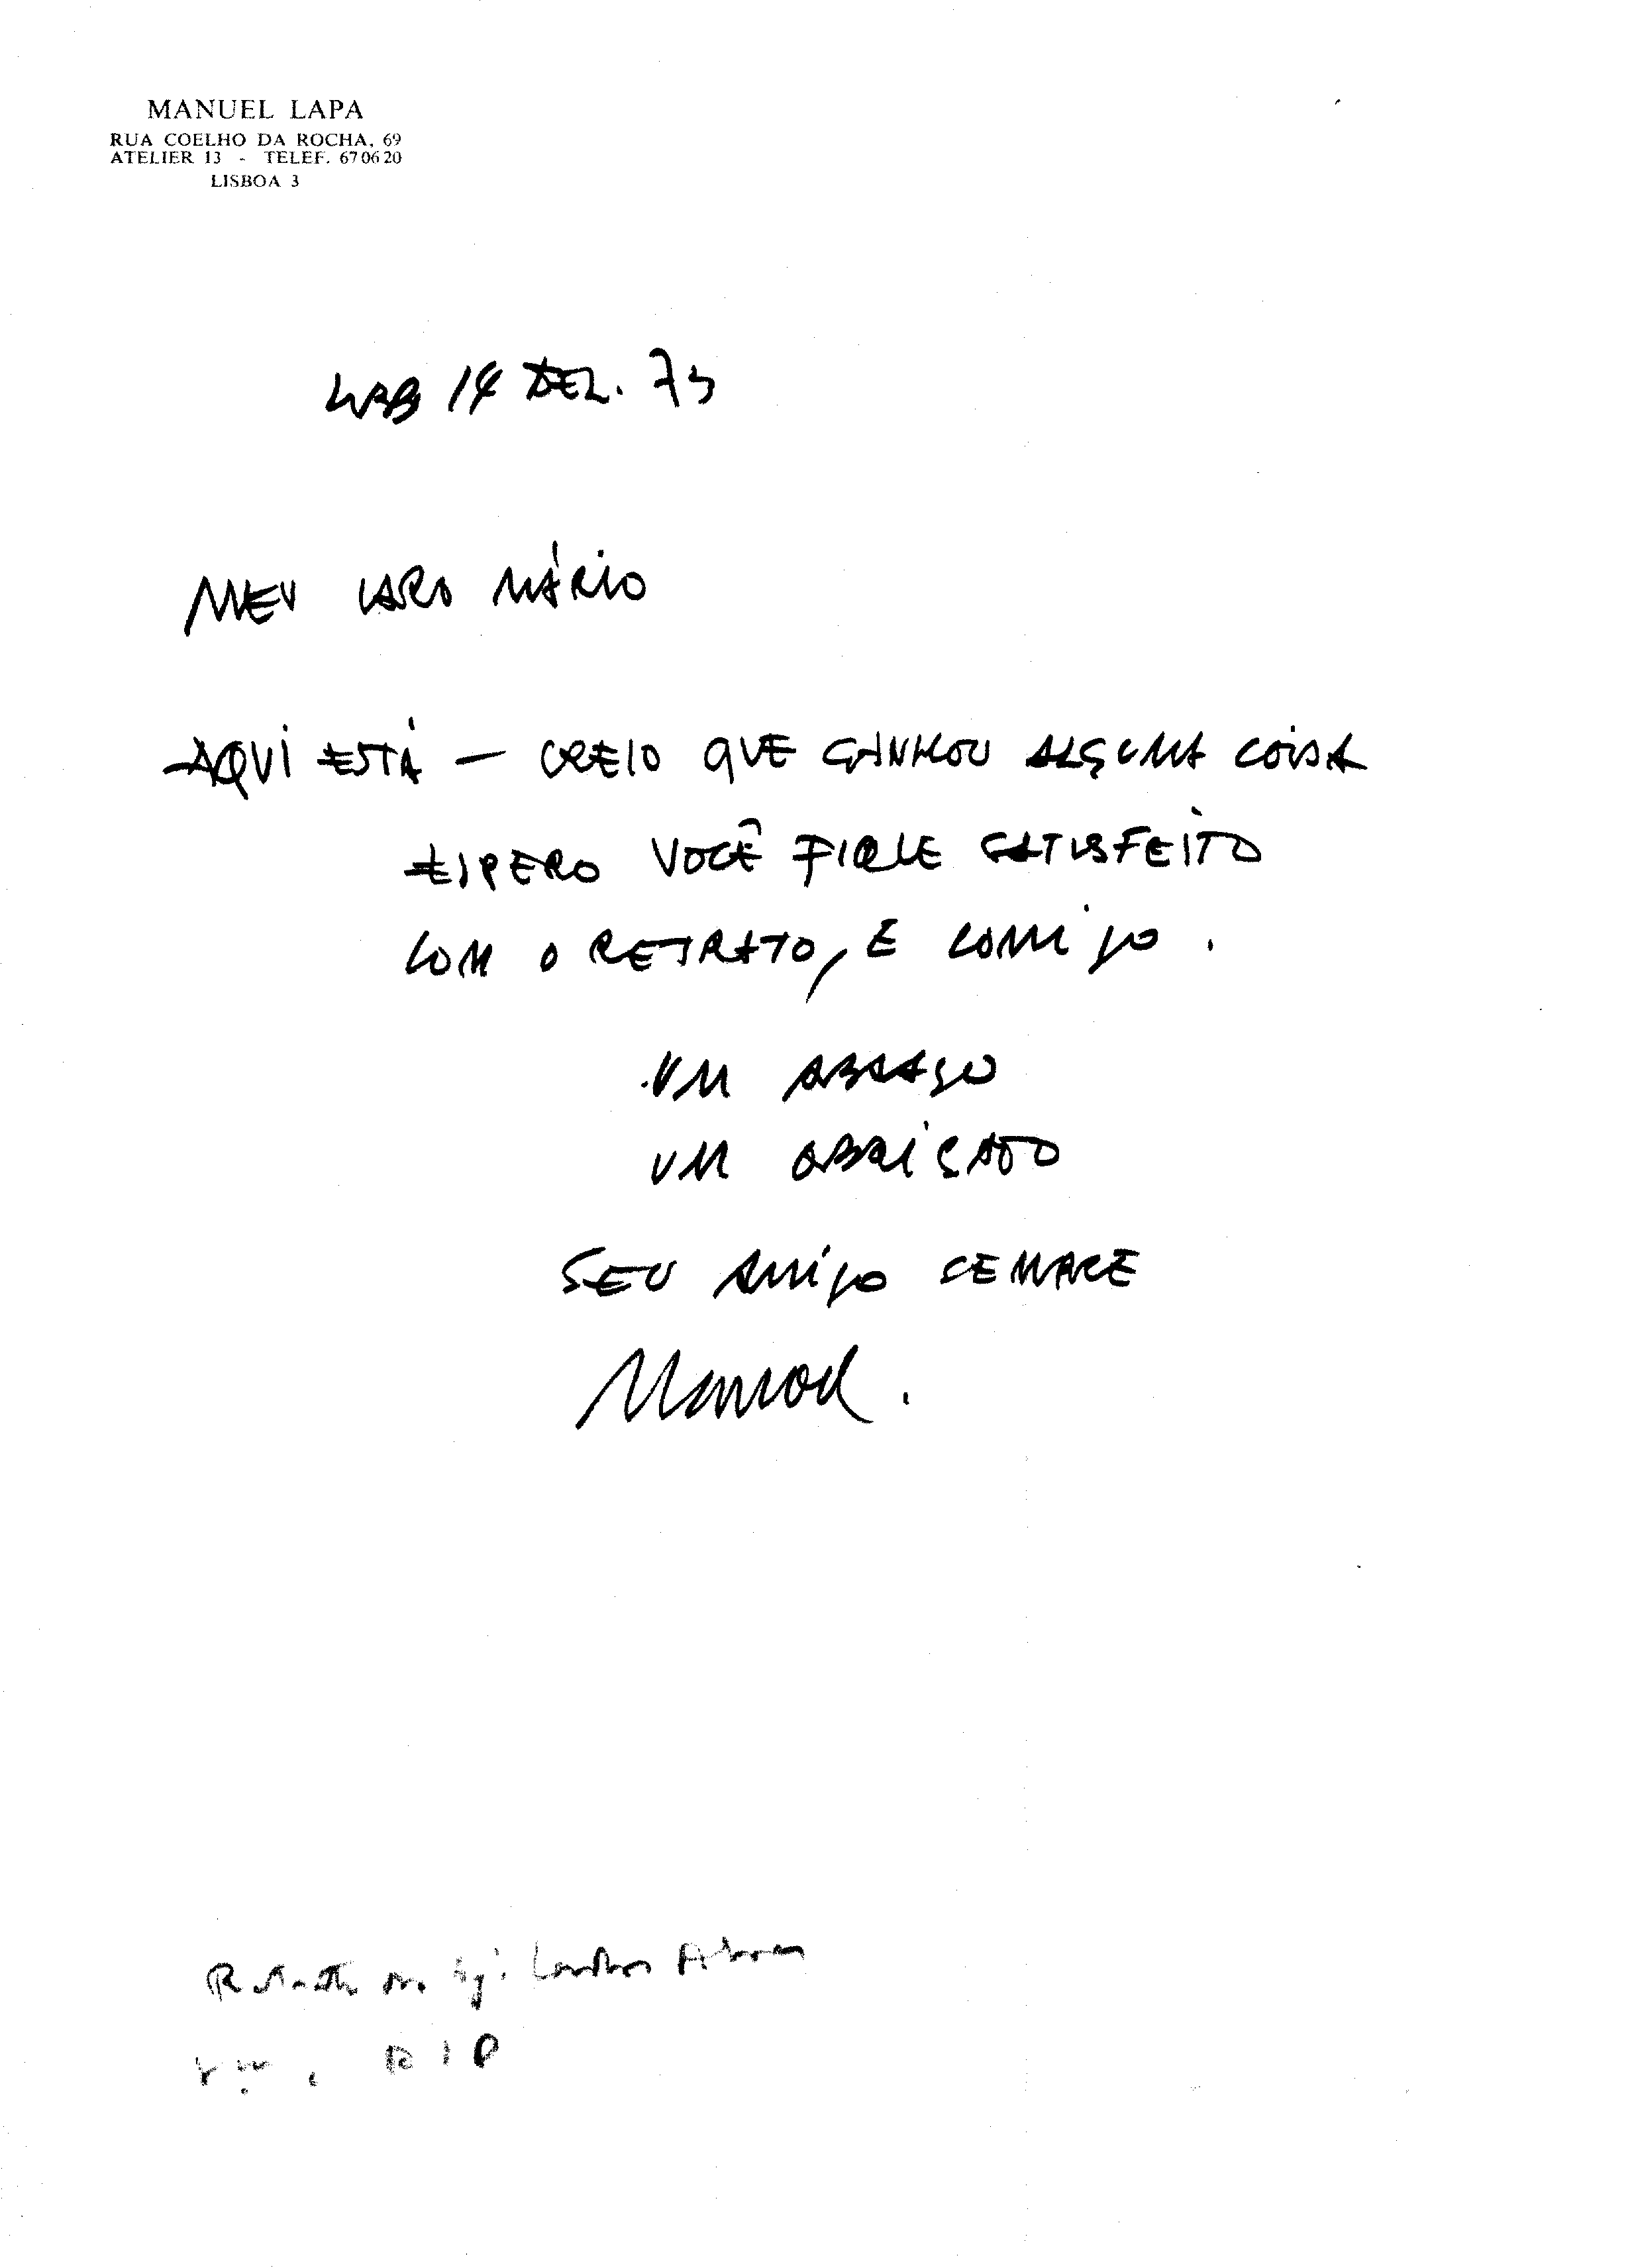 MANUEL LAPA
RUA COELHO DA ROCHA, 69
ATELIER 13 - TELEF. 670620
LISBOA 3
14 DEZ. 73
MEU CARO MÁRIO
AQUI ESTÁ — CREIO QUE GANHOU ALGUMA COISA
ESPERO VOCÊ FIQUE SATISFEITO
COM O RETRATO, E COMIGO.
UM ABRAÇO
UM OBRIGADO
SEU AMIGO SEMPRE
Manuel.